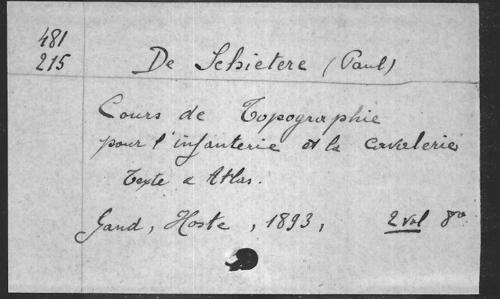 481
215
De Schietere (Paul)
Cours de Topographie
pour l'infanterie et la cavalerie
Texte & Atlas.
Gand, Hoste, 1893, 2 vol 8°